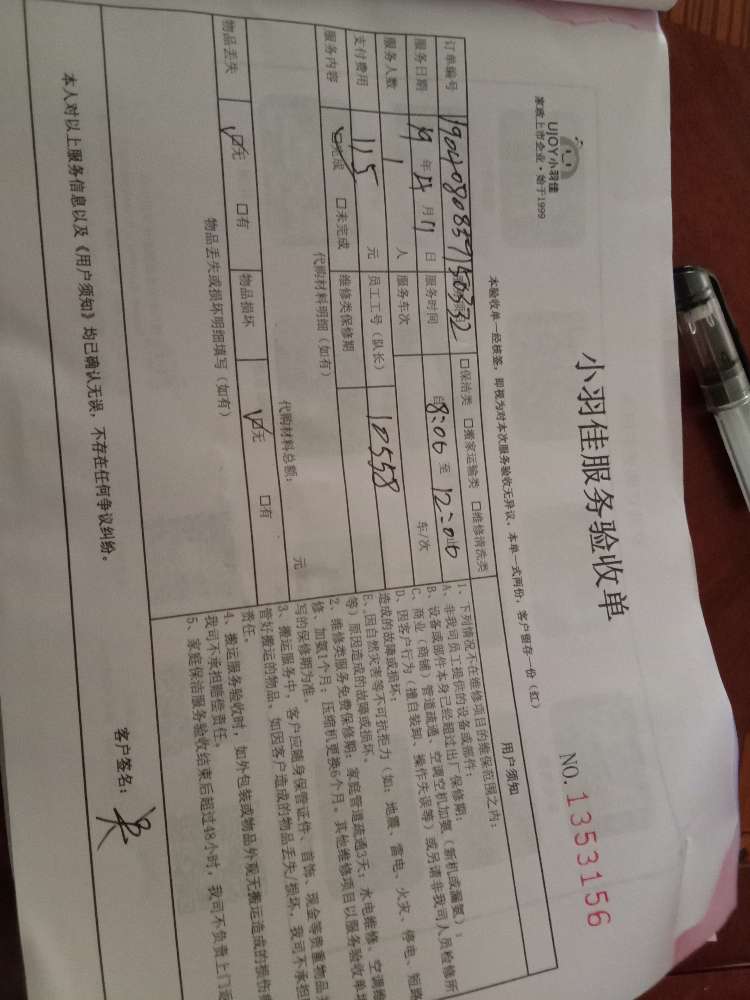 UJOY小羽佳
家政上市企业·始于1999
小羽佳服务验收单
NO. 1353156
本验收单一经核签，即视为对本次服务验收无异议，本单一式两份，客户留存一份（红）
订单编号 190408083715033 2
□保洁类 □搬家运输类 □维修清洗类
服务日期 19 年 4 月 11 日 服务时间 自 8:00 至 12:00 止
服务人数 1 人 服务车次 车/次
支付费用 115 元 员工工号（队长） 10558
服务内容 ☑完成 □未完成 维修类保修期
代购材料明细（如有）
代购材料总额： 元
物品丢失 ☑无 □有 物品损坏 ☑无 □有
物品丢失或损坏明细填写（如有）
用户须知
1、下列情况不在维修项目的维保范围之内：
A、非我司员工提供的设备或部件；
B、设备或部件本身已经超过出厂保修期；
C、商业（商铺）管道疏通、空调空机加氨（新机或漏氨）；
D、因客户行为（擅自装卸、操作失误等）或另请非我司人员检修所
造成的故障或损坏；
E、因自然灾害等不可抗拒力（如：地震、雷电、火灾、停电、短路
等）原因造成的故障或损坏。
2、维修类服务免费保修期：家庭管道疏通3天；水电维修、空调维
修、加氨1个月；压缩机更换6个月。其他维修项目以服务验收单填
写的保修期为准。
3、搬运服务中，客户应随身保管证件、首饰、现金等贵重物品并
管好搬运的物品。如因客户造成的物品丢失/损坏，我司不承担
责任。
4、搬运服务验收时，如外包装或物品外观无搬运造成的损伤
我司不承担赔偿责任。
5、家庭保洁服务验收结束后超过48小时，我司不负责上门
本人对以上服务信息以及《用户须知》均已确认无误，不存在任何争议纠纷。
客户签名： 吴